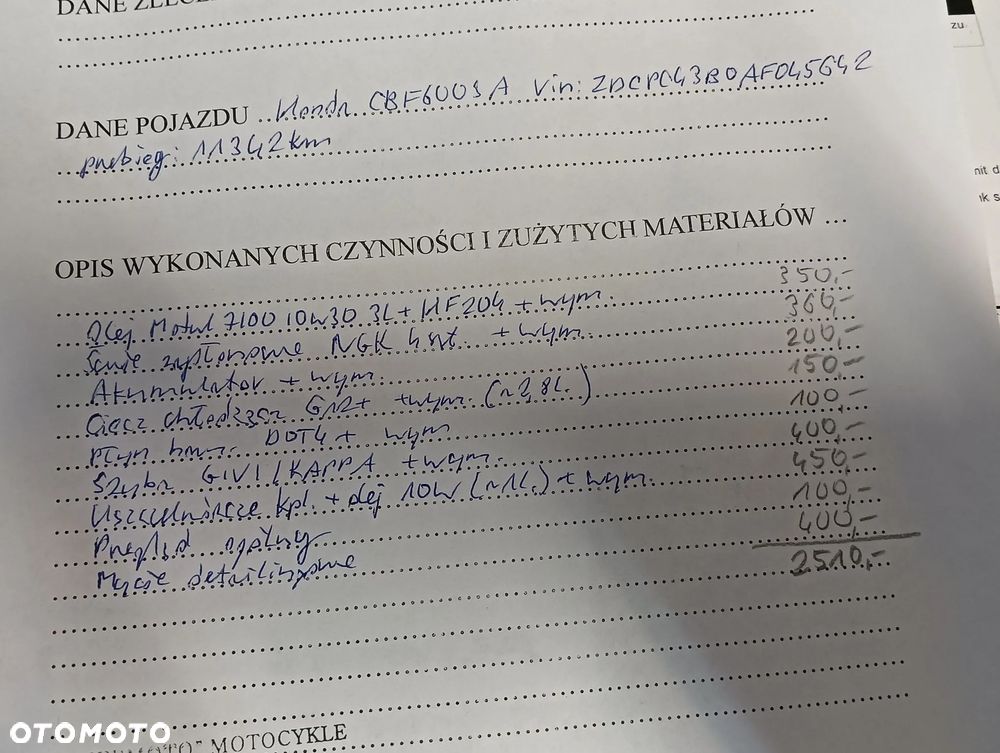 DANE ZLECE
DANE POJAZDU Honda CBF600SA Vin: ZDCPC43B0AF045642
przebieg: 11342km
OPIS WYKONANYCH CZYNNOŚCI I ZUŻYTYCH MATERIAŁÓW ...
Olej Motul 7100 10w30 3L + HF204 + wym. 350,-
Świece zapłonowe NGK 4szt. + wym. 360,-
Akumulator + wym 200,-
Ciecz chłodząca G12+ + wym. (~2,8L.) 150,-
Płyn ham. DOT4 + wym 100,-
Szyba GIVI/KAPPA + wym. 400,-
Uszczelniacze kpl. + olej 10W (~1L.) + wym. 450,-
Przegląd ogólny 100,-
Mycie detailingowe 400,-
2510,-
MOTO" MOTOCYKLE
OTOMOTO
zu
nit d
ık s